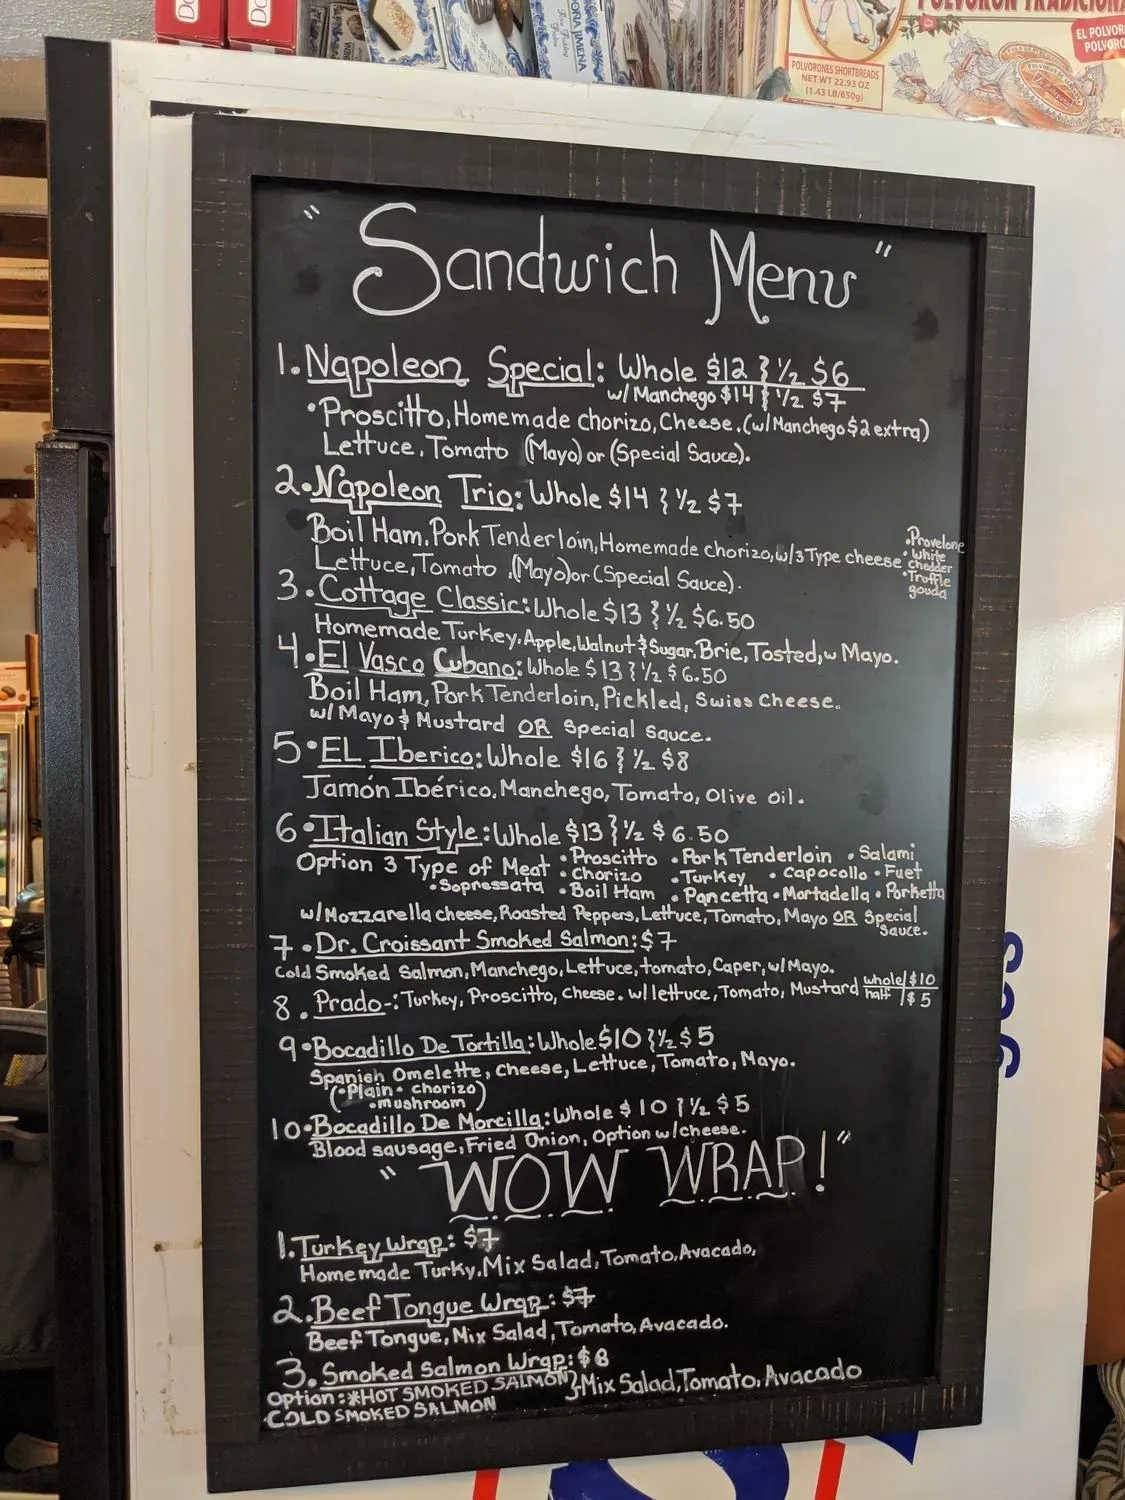 POLVORON TRADICIONA
EL POLVOR
POLVORO
POLVORONES SHORTBREADS
NET WT 22.93 OZ
(1.43 LB/650g)
"Sandwich Menu"
1. Napoleon Special: Whole $12 } ½ $6
w/ Manchego $14 } ½ $7
• Proscitto, Homemade chorizo, Cheese. (w/ Manchego $2 extra)
Lettuce, Tomato (Mayo) or (Special Sauce).
2. Napoleon Trio: Whole $14 } ½ $7
Boil Ham, Pork Tenderloin, Homemade chorizo, w/3 Type cheese
• Provelone
• White
chedder
• Truffle
gouda
Lettuce, Tomato (Mayo) or (Special Sauce).
3. Cottage Classic: Whole $13 } ½ $6.50
Homemade Turkey, Apple, Walnut & Sugar, Brie, Tosted, w Mayo.
4. El Vasco Cubano: Whole $13 } ½ $6.50
Boil Ham, Pork Tenderloin, Pickled, Swiss Cheese.
w/ Mayo & Mustard OR Special Sauce.
5. EL Iberico: Whole $16 } ½ $8
Jamón Ibérico, Manchego, Tomato, Olive oil.
6. Italian Style: Whole $13 } ½ $6.50
Option 3 Type of Meat • Proscitto • Pork Tenderloin • Salami
• chorizo • Turkey • Capocollo • Fuet
• Sopressata • Boil Ham • Pancetta • Mortadella • Porketta
w/ Mozzarella cheese, Roasted Peppers, Lettuce, Tomato, Mayo OR Special
Sauce.
7. Dr. Croissant Smoked Salmon: $7
Cold Smoked Salmon, Manchego, Lettuce, tomato, Caper, w/ Mayo.
8. Prado-: Turkey, Proscitto, cheese. w/ lettuce, Tomato, Mustard whole/$10
half /$5
9. Bocadillo De Tortilla: Whole $10 } ½ $5
Spanish Omelette, Cheese, Lettuce, Tomato, Mayo.
(• Plain • chorizo)
• mushroom
10. Bocadillo De Morcilla: Whole $10 } ½ $5
Blood sausage, Fried Onion, Option w/ cheese.
"WOW WRAP!"
1. Turkey Wrap: $7
Homemade Turky, Mix Salad, Tomato, Avacado,
2. Beef Tongue Wrap: $7
Beef Tongue, Mix Salad, Tomato, Avacado.
3. Smoked Salmon Wrap: $8
Option: *HOT SMOKED SALMON }-Mix Salad, Tomato, Avacado
COLD SMOKED SALMON